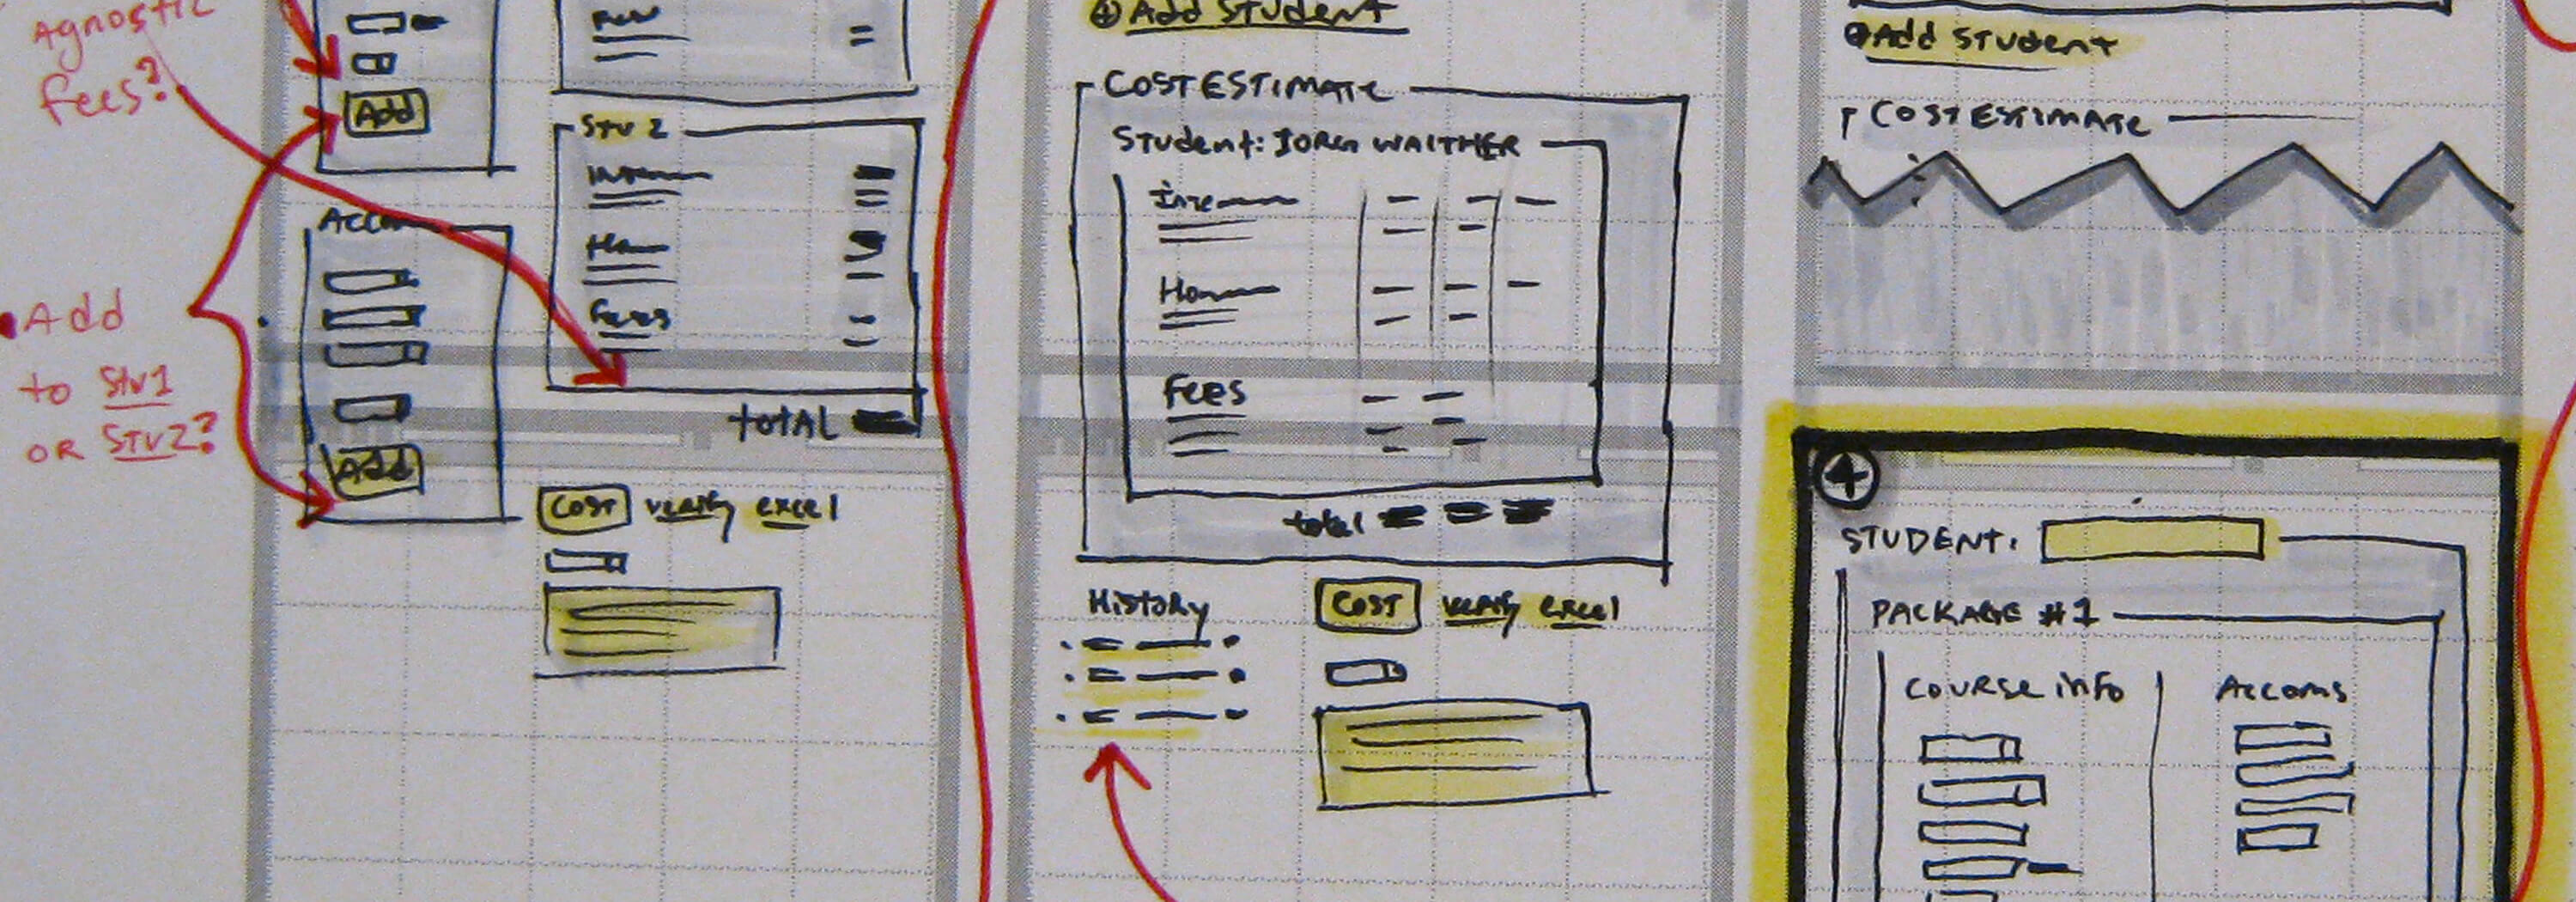 Agnostic
fees?
Add
Add
to Stu1
or Stu2?
Accom
Add
Stu 2
Fees
total
Cost verify excel
Add Student
COST ESTIMATE
Student: JORG WALTHER
Fees
total
History
Cost verify excel
Add Student
COST ESTIMATE
4
STUDENT:
PACKAGE #1
Course info
Accoms